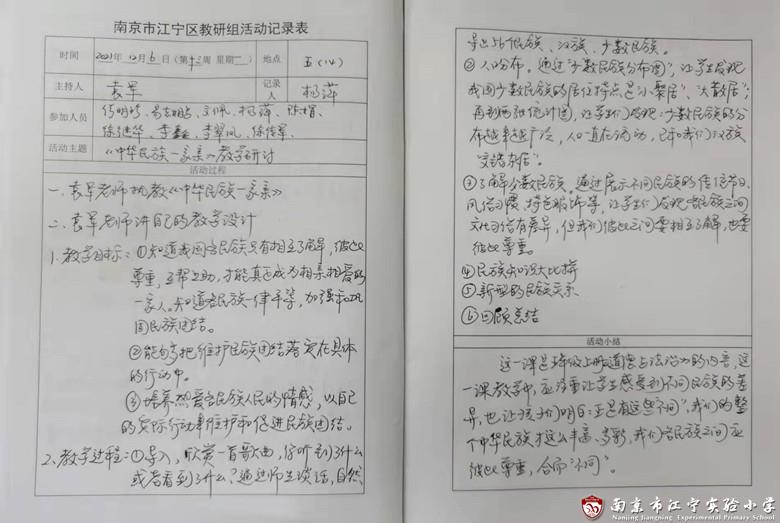 南京市江宁区教研组活动记录表
时间 2021年12月6日(第十三周 星期一) 地点 五(14)
主持人 袁军 记录人 杨萍
参加人员
活动主题 《中华民族一家亲》教学研讨
活动过程
一、袁军老师执教《中华民族一家亲》
二、袁军老师讲自己的教学设计
1、教学目标:①知道我国各民族只有相互了解,彼此
尊重,互帮互助,才能真正成为相亲相爱的
一家人。知道各民族一律平等,加强和巩
固民族团结。
②能够把维护民族团结落实在具体
的行动中。
③培养热爱各民族人民的情感,以自己
的实际行动来维护和促进民族团结。
2、教学过程:①导入,欣赏一首歌曲,你听到了什么
或者看到了什么?通过师生谈话,自然
导出56个民族、汉族、少数民族。
②人口分布。通过"少数民族分布图",让学生发现
我国少数民族的居住特点是"小聚居"、"大散居";
再到两张统计图,让学生们发现:少数民族的分
布越来越广泛,人口一直在流动,已和我们汉族
"交错杂居"。
③了解少数民族。通过展示不同民族的传统节日、
风俗习惯、特色服饰等,让学生们发现各民族之间
文化习俗有差异,但我们彼此之间要相互了解,也要
彼此尊重。
④民族知识大比拼
⑤新型的民族关系
⑥回顾总结
活动小结
这一课是班级上册道德与法治的内容,这
一课教学中,应注重让学生感受到不同民族的差
异,也让孩子们明白:正是有这些"不同",我们的整
个中华民族才这么丰富、多彩,我们各民族之间应
彼此尊重,合而"不同"。
南京市江宁实验小学
Nanjing Jiangning Experimental Primary School